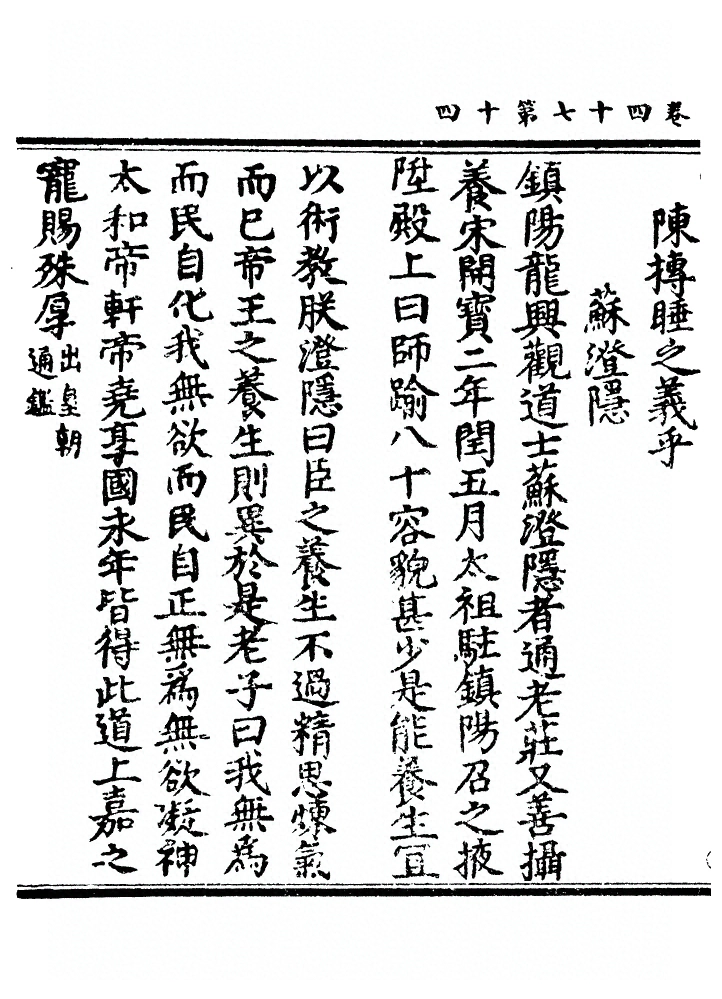 卷四十七第十四
陳摶睡之義乎
蘇澄隱
鎮陽龍興觀道士蘇澄隱者通老莊又善攝
養宋開寶二年閏五月太祖駐鎮陽召之掖
陞殿上曰師踰八十容貌甚少是能養生宜
以術教朕澄隱曰臣之養生不過精思煉氣
而已帝王之養生則異於是老子曰我無為
而民自化我無欲而民自正無為無欲凝神
太和帝軒帝堯享國永年皆得此道上嘉之
寵賜殊厚出皇朝
通鑑